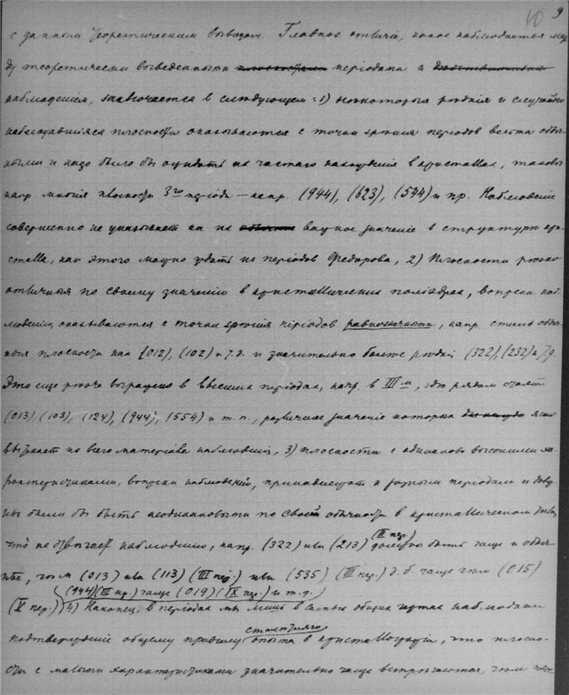 10 9
с данным теоретическим выводом. Главное отличие, какое наблюдается меж
ду теоретически выведенными периодами и
наблюдением, заключается в следующем: 1) некоторыя редкия и случайно
наблюдавшияся плоскости оказываются с точки зрения периодов весьма обыч
ными и надо было бы ожидать их частаго нахождения в кристаллах, таковы
напр. многия плоскости 3го периода – напр. (944), (623), (594) и пр. Наблюдение
совершенно не указывает на их важное значение в структуре кри
сталла, как этого можно ждать из периодов Федорова, 2) Плоскости резко
отличныя по своему значению в кристаллических полиэдрах, вопреки наб
людению, оказываются с точки зрения периодов равнозначными, напр. столь обыч
ныя плоскости как (012), (102) и т.д. и значительно более редкия (322), (232) и т.д.
Это еще резче выражено в высших периодах, напр. в IIIм, где рядом стоят
(013), (103), (124), (944), (554) и т.п., различное значение которых ясно
вытекает из всего материала наблюдений, 3) плоскости с одинаково высокими ха
рактеристиками, вопреки наблюдений, принадлежат к разным периодам и долж
ны были бы быть неодинаковыми по своей обычности в кристаллическом
что не отвечает наблюдению, напр. (322) или (213) (II пер.) должны быть чаще и обыч
нее, чем (013) или (113) (III пер.) или (535) (III пер.) д.б. чаще чем (015)
(V пер.) (944) (III пр.) чаще (019) (IX пер.) и т.д. 4) Наконец, в периодах мы лишь в самых общих чертах находим
подтверждение общему правилу опыта в кристаллографии, что плоско
сти с малыми характеристиками значительно чаще встречаются, чем